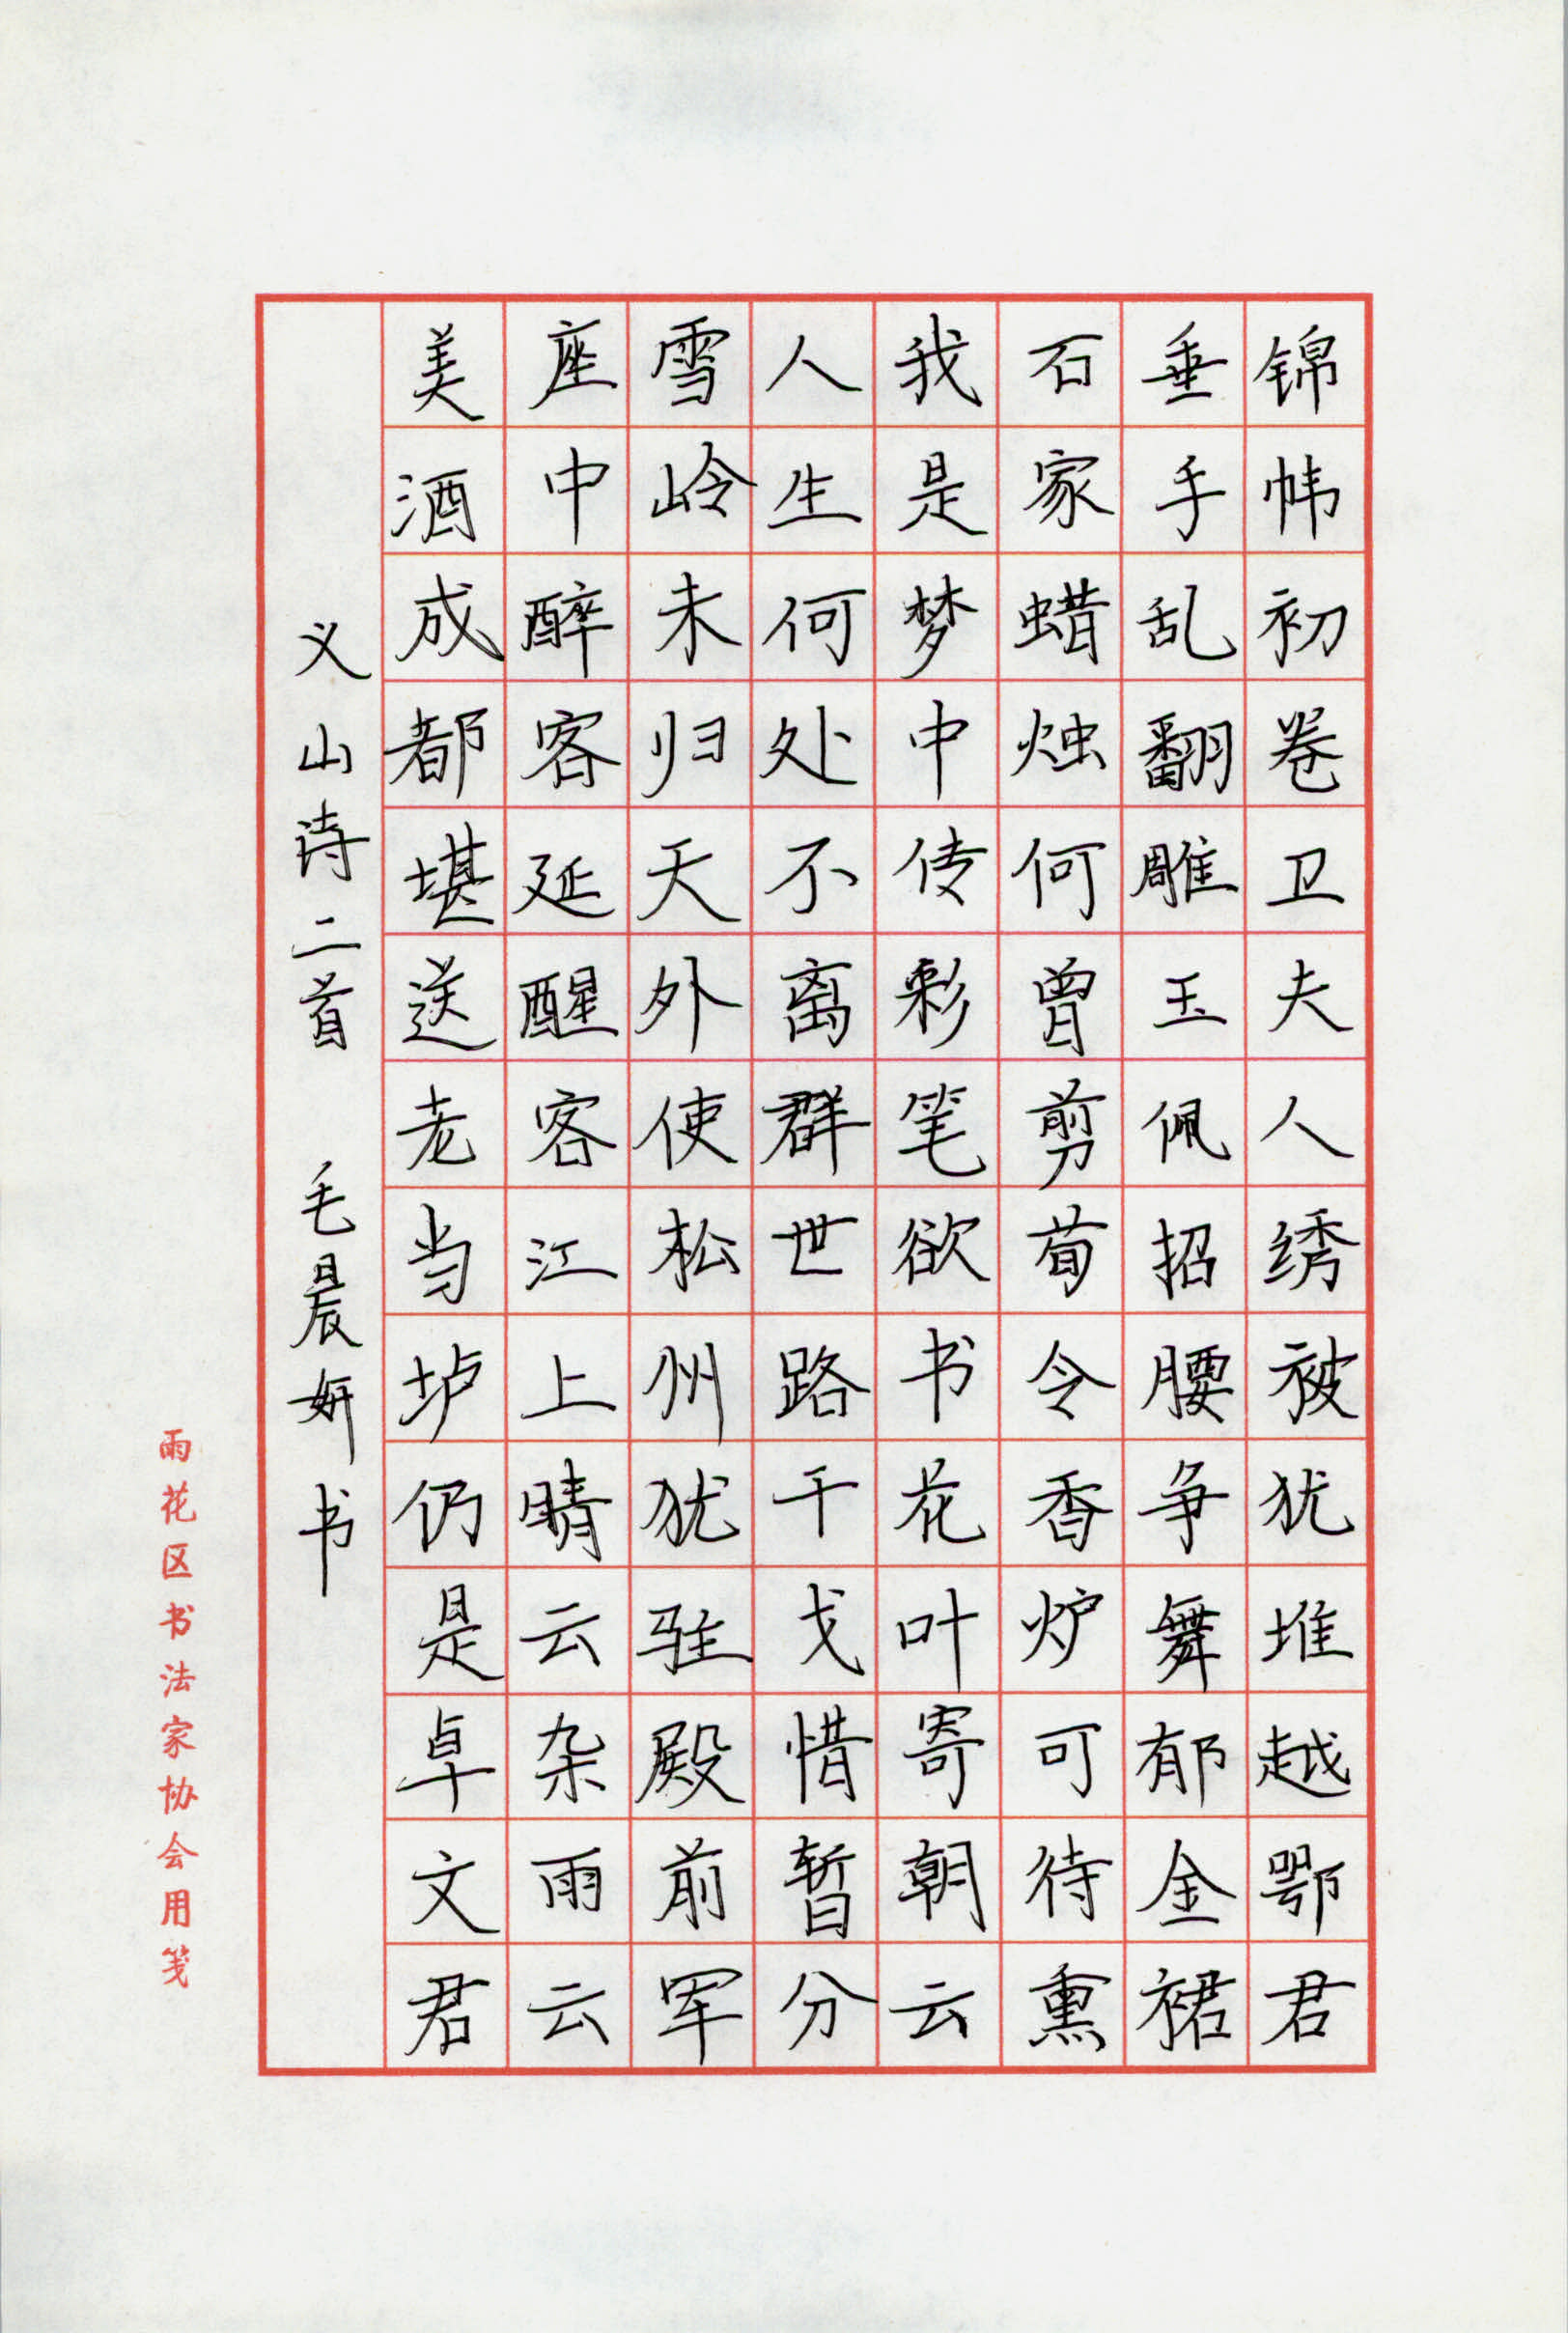 锦帏初卷卫夫人绣被犹堆越鄂君
垂手乱翻雕玉佩招腰争舞郁金裙
石家蜡烛何曾剪荀令香炉可待熏
我是梦中传彩笔欲书花叶寄朝云
人生何处不离群世路干戈惜暂分
雪岭未归天外使松州犹驻殿前军
座中醉客延醒客江上晴云杂雨云
美酒成都堪送老当垆仍是卓文君
义山诗二首 毛晨妍书
雨花区书法家协会用笺